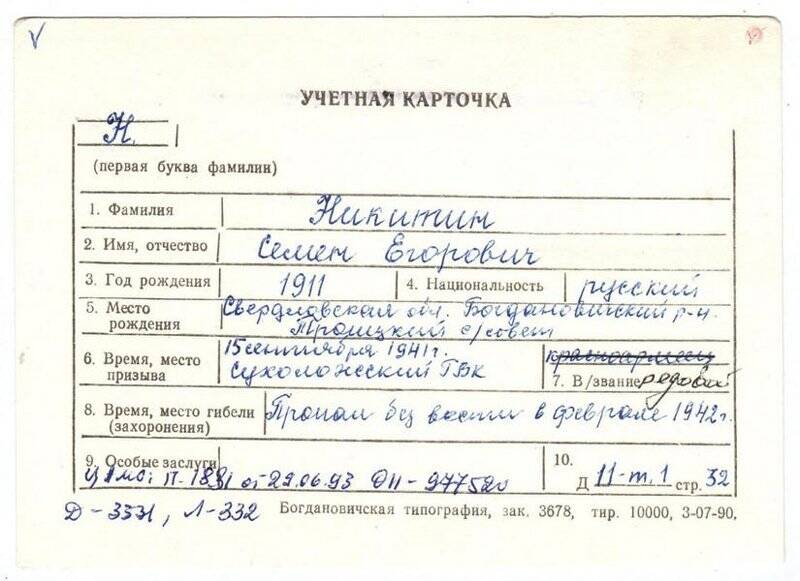 УЧЕТНАЯ КАРТОЧКА
Н.
(первая буква фамилии)
1. Фамилия Никитин
2. Имя, отчество Семен Егорович
3. Год рождения 1911 4. Национальность русский
5. Место рождения Свердловская обл. Богдановичский р-н.
Троицкий с/совет
6. Время, место призыва 15 сентября 1941г.
Сухоложский ГВК
красноармеец
7. В/звание рядовой
8. Время, место гибели (захоронения) Пропал без вести в феврале 1942г.
9. Особые заслуги
ЦАМО: п-1881 от 29.06.93 ОП-977520
10.
Д 11-т.1 стр. 32
Д-3331, Л-332
Богдановичская типография, зак. 3678, тир. 10000, 3-07-90,